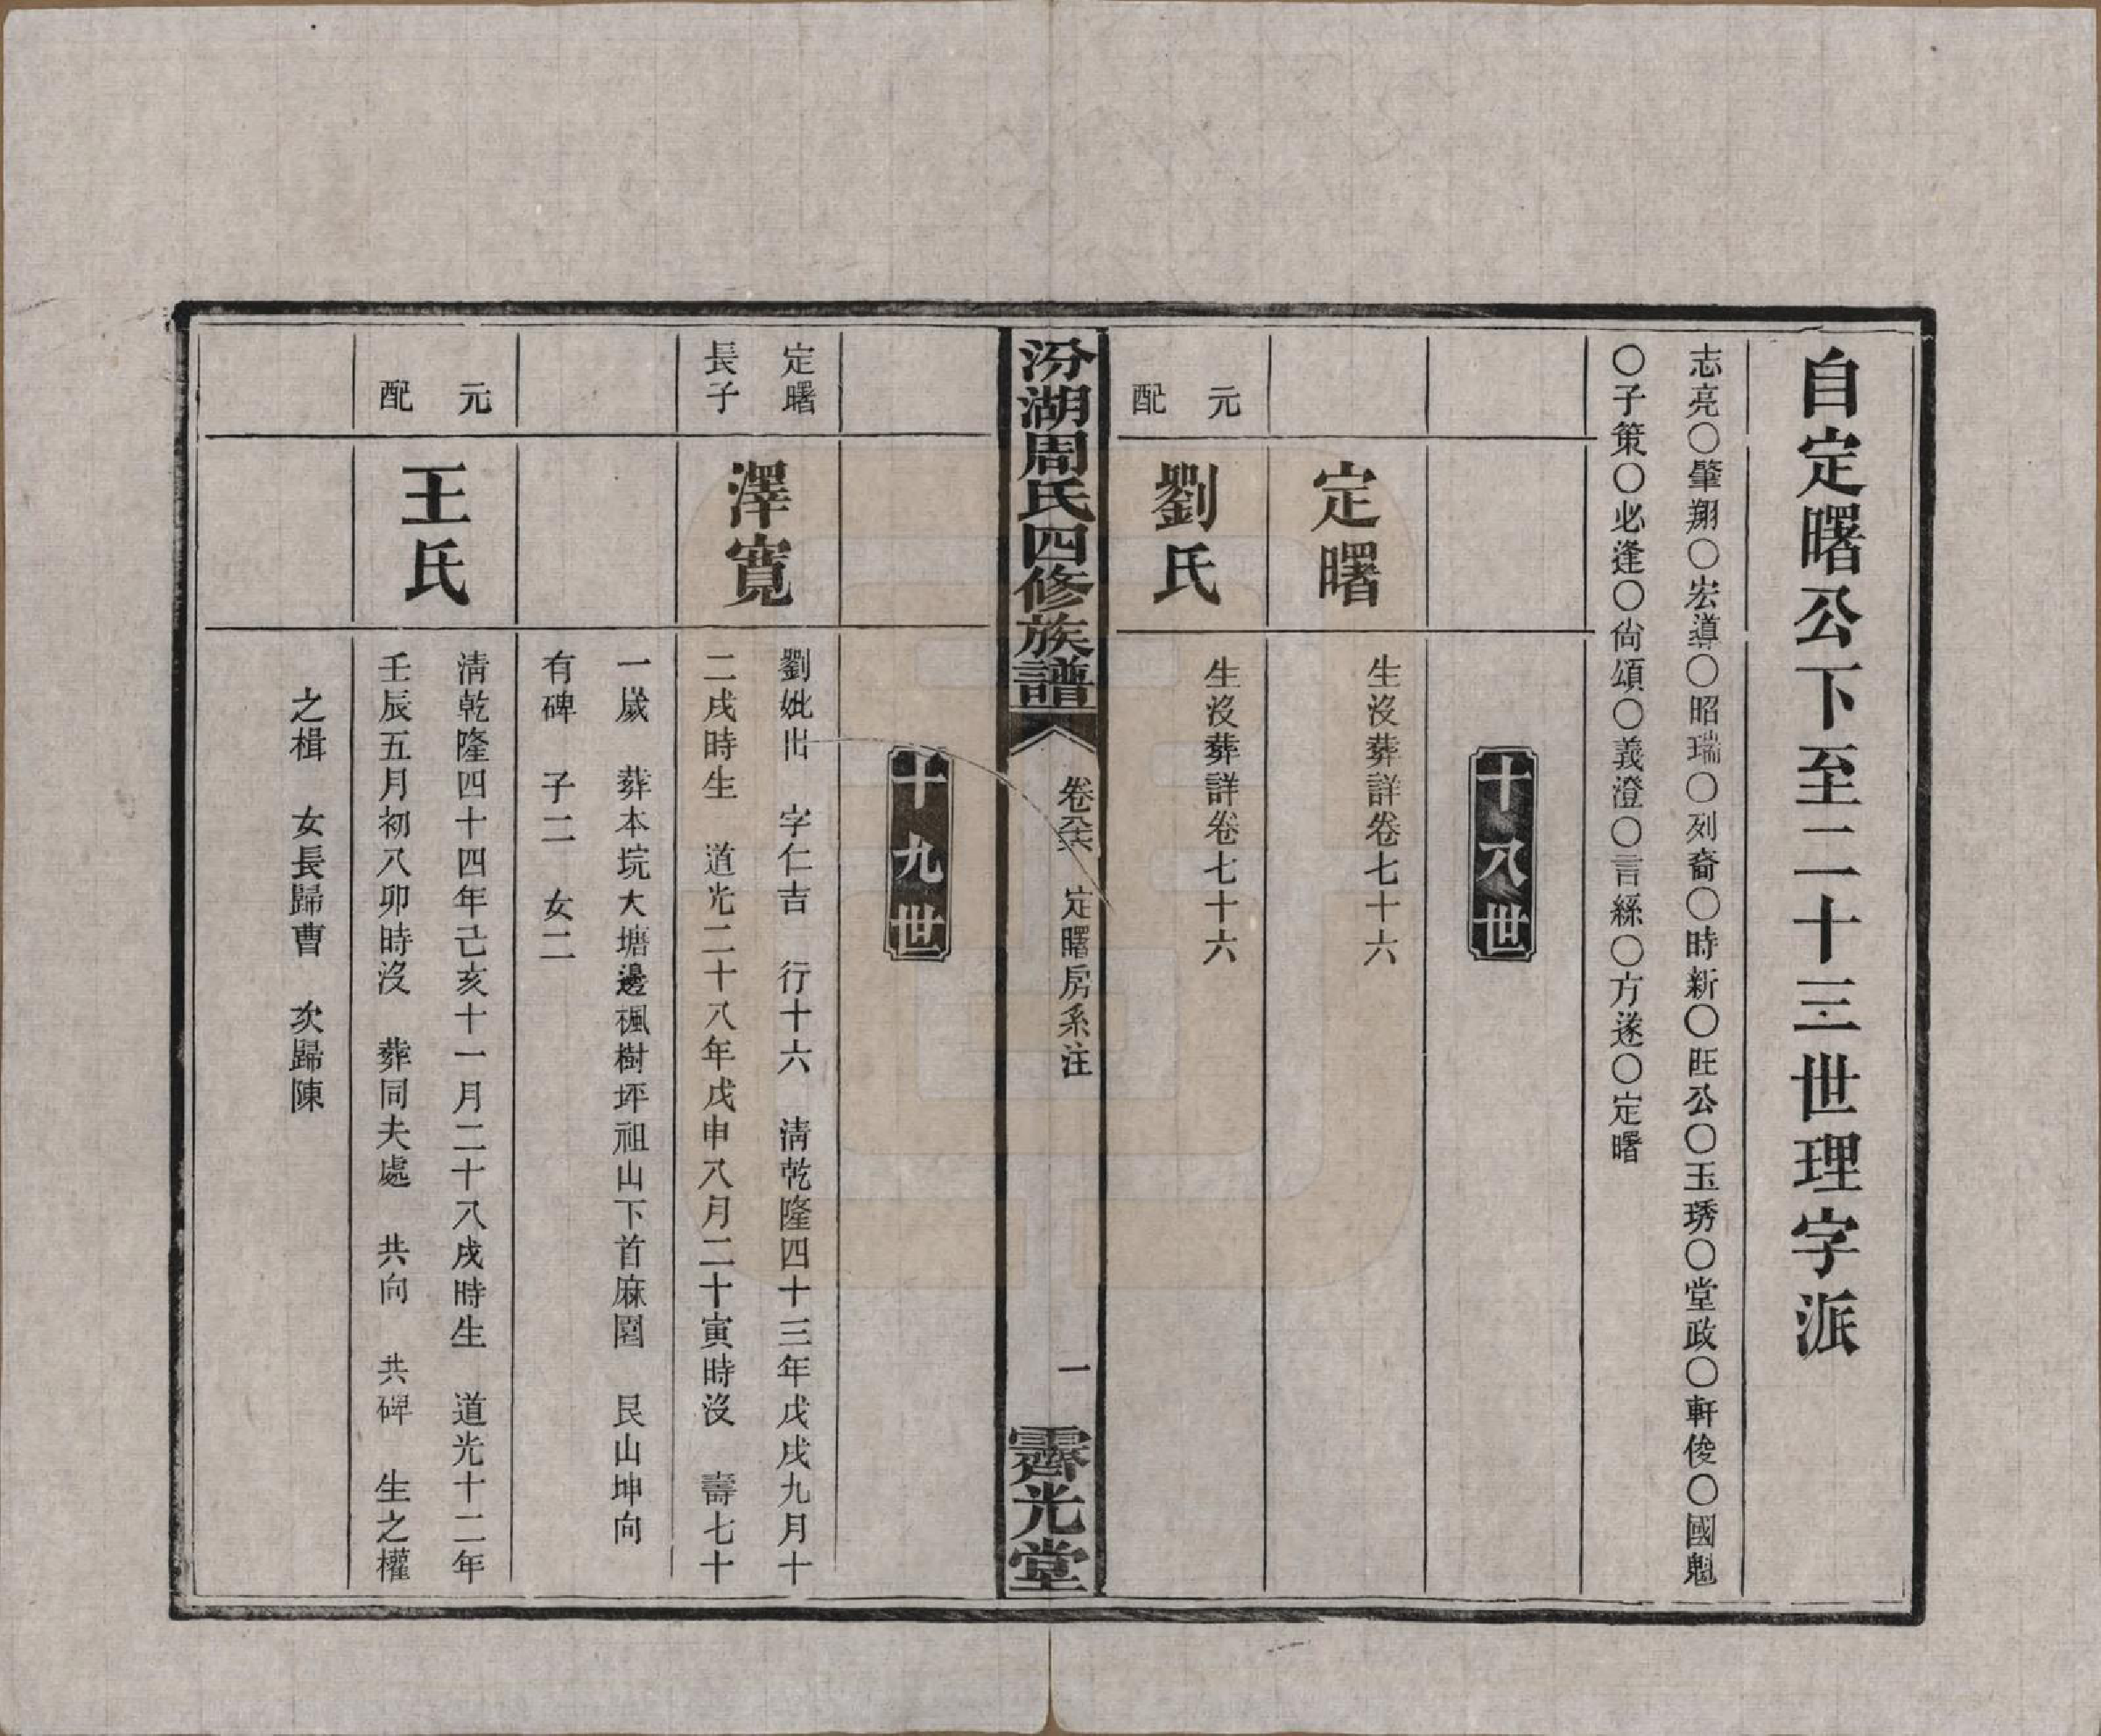 自定曙公下至二十三世理字派
志亮〇肇翔〇宏導〇昭瑞〇列裔〇時新〇旺公〇玉琇〇堂政〇軒俊〇國魁
〇子策〇必逢〇尙頌〇義澄〇言綵〇方遂〇定曙
十八世
定曙
生沒葬詳卷七十六
元配
劉氏
生沒葬詳卷七十六
汾湖周氏四修族譜
卷 定曙房系注
一
霽光堂
十九世
定曙
長子
澤寬
劉妣出 字仁吉 行十六 淸乾隆四十三年戊戌九月十
二戌時生 道光二十八年戊申八月二十寅時沒 壽七十
一歲 葬本坑大塘邊楓樹坪祖山下首麻園 艮山坤向
有碑 子二 女二
元配
王氏
淸乾隆四十四年己亥十一月二十八戌時生 道光十二年
壬辰五月初八卯時沒 葬同夫處 共向 共碑 生之權
之楫 女長歸曹 次歸陳